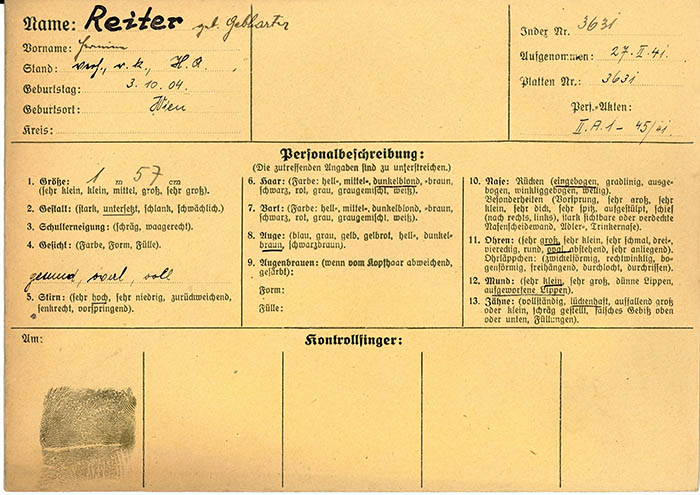 Name: Reiter geb. Gebharter
Vorname: Hermine
Stand: verh., r. k., H. A.
Geburtstag: 3. 10. 04.
Geburtsort: Wien
Kreis:
Index Nr. 3631
Aufgenommen: 27. II. 41.
Platten Nr.: 3631
Pers.-Akten:
II. A. 1 - 45/41
Personalbeschreibung:
(Die zutreffenden Angaben sind zu unterstreichen.)
1. Größe: 1 m 57 cm
(sehr klein, klein, mittel, groß, sehr groß).
2. Gestalt: (stark, untersetzt, schlank, schwächlich).
3. Schulterneigung: (schräg, waagerecht).
4. Gesicht: (Farbe, Form, Fülle).
gesund, oval, voll
5. Stirn: (sehr hoch, sehr niedrig, zurückweichend,
senkrecht, vorspringend).
6. Haar: (Farbe: hell-, mittel-, dunkelblond, -braun,
schwarz, rot, grau, graugemischt, weiß).
7. Bart: (Farbe: hell-, mittel-, dunkelblond, -braun,
schwarz, rot, grau, graugemischt, weiß).
8. Auge: (blau, grau, gelb, gelbrot, hell-, dunkel-
braun, schwarzbraun).
9. Augenbrauen: (wenn vom Kopfhaar abweichend,
gefärbt):
Form:
Fülle:
10. Nase: Rücken (eingebogen, gradlinig, ausge-
bogen, winkliggebogen, wellig).
Besonderheiten (Vorsprung, sehr groß, sehr
klein, sehr dick, sehr spitz, aufgestülpt, schief
(nach rechts, links), stark sichtbare oder verdeckte
Nasenscheidewand, Adler-, Trinkernase).
11. Ohren: (sehr groß, sehr klein, sehr schmal, drei-,
viereckig, rund, oval, abstehend, sehr anliegend).
Ohrläppchen: (zwickelförmig, rechtwinklig, bo-
genförmig, freihängend, durchlocht, durchrissen).
12. Mund: (sehr klein, sehr groß, dünne Lippen,
aufgeworfene Lippen).
13. Zähne: (vollständig, lückenhaft, auffallend groß
oder klein, schräg gestellt, falsches Gebiß oben
oder unten, Füllungen).
Am:
Kontrollfinger: